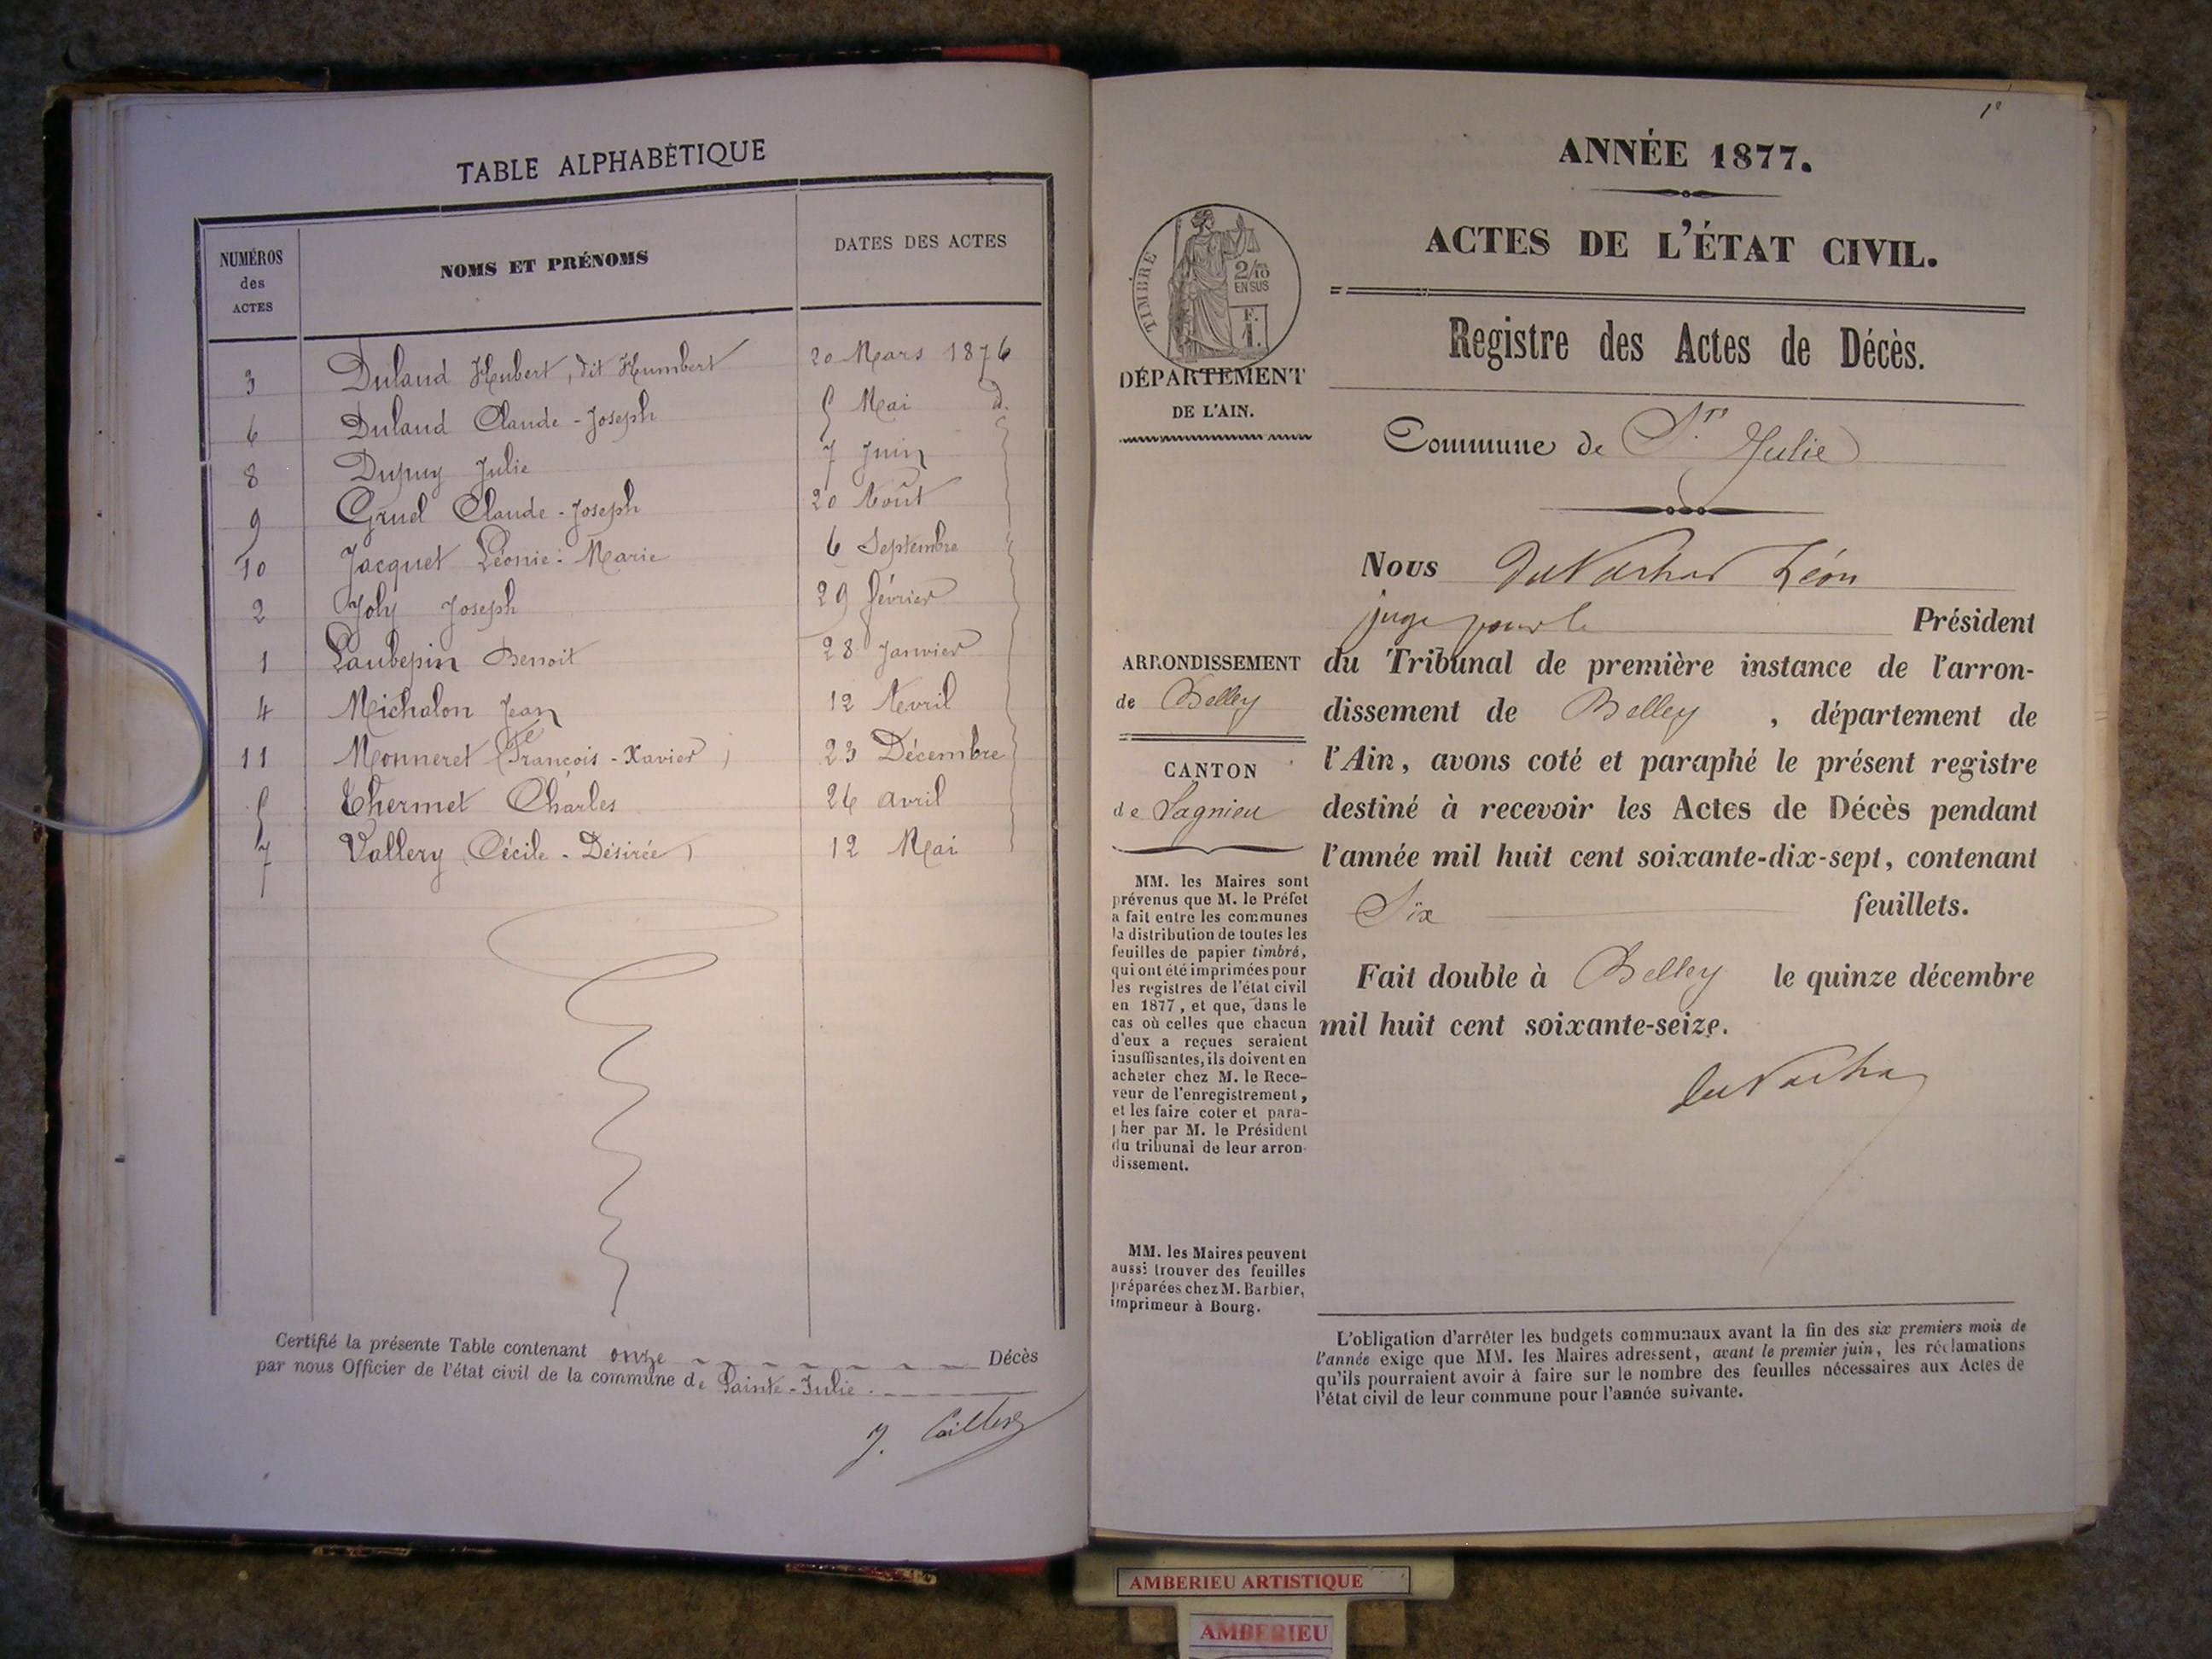 TABLE ALPHABÉTIQUE
NUMÉROS des ACTES
NOMS ET PRÉNOMS
DATES DES ACTES
3 Duland Hubert, dit Humbert 20 Mars 1876
6 Duland Claude-Joseph 5 Mai d.
8 Dupuy Julie 7 Juin
9 Gruel Claude-Joseph 20 Août
10 Jacquet Léonie-Marie 6 Septembre
2 Joly Joseph 29 février
1 Laubepin Benoit 28 Janvier
4 Michalon Jean 12 Avril
11 Monneret (François-Xavier) 23 Décembre
5 Thermet Charles 26 avril
7 Vallery (Cécile-Désirée) 12 Mai
Certifié la présente Table contenant onze Décès
par nous Officier de l'état civil de la commune de Sainte-Julie.
1e
ANNÉE 1877.
ACTES DE L'ÉTAT CIVIL.
Registre des Actes de Décès.
TIMBRE
2/10
EN SUS
F.
1.
DÉPARTEMENT
DE L'AIN.
Commune de Ste Julie
Nous Léon
juge pour le Président
du Tribunal de première instance de l'arron-
dissement de Belley, département de
l'Ain, avons coté et paraphé le présent registre
destiné à recevoir les Actes de Décès pendant
l'année mil huit cent soixante-dix-sept, contenant
Six feuillets.
Fait double à Belley le quinze décembre
mil huit cent soixante-seize.
ARRONDISSEMENT
de Belley
CANTON
de Lagnieu
MM. les Maires sont
prévenus que M. le Préfet
a fait entre les communes
la distribution de toutes les
feuilles de papier timbré,
qui ont été imprimées pour
les registres de l'état civil
en 1877, et que, dans le
cas où celles que chacun
d'eux a reçues seraient
insuffisantes, ils doivent en
acheter chez M. le Rece-
veur de l'enregistrement,
et les faire coter et para-
pher par M. le Président
du tribunal de leur arron-
dissement.
MM. les Maires peuvent
aussi trouver des feuilles
préparées chez M. Barbier,
imprimeur à Bourg.
L'obligation d'arrêter les budgets communaux avant la fin des six premiers mois de
l'année exige que MM. les Maires adressent, avant le premier juin, les réclamations
qu'ils pourraient avoir à faire sur le nombre des feuilles nécessaires aux Actes de
l'état civil de leur commune pour l'année suivante.
AMBERIEU ARTISTIQUE
AMBERIEU